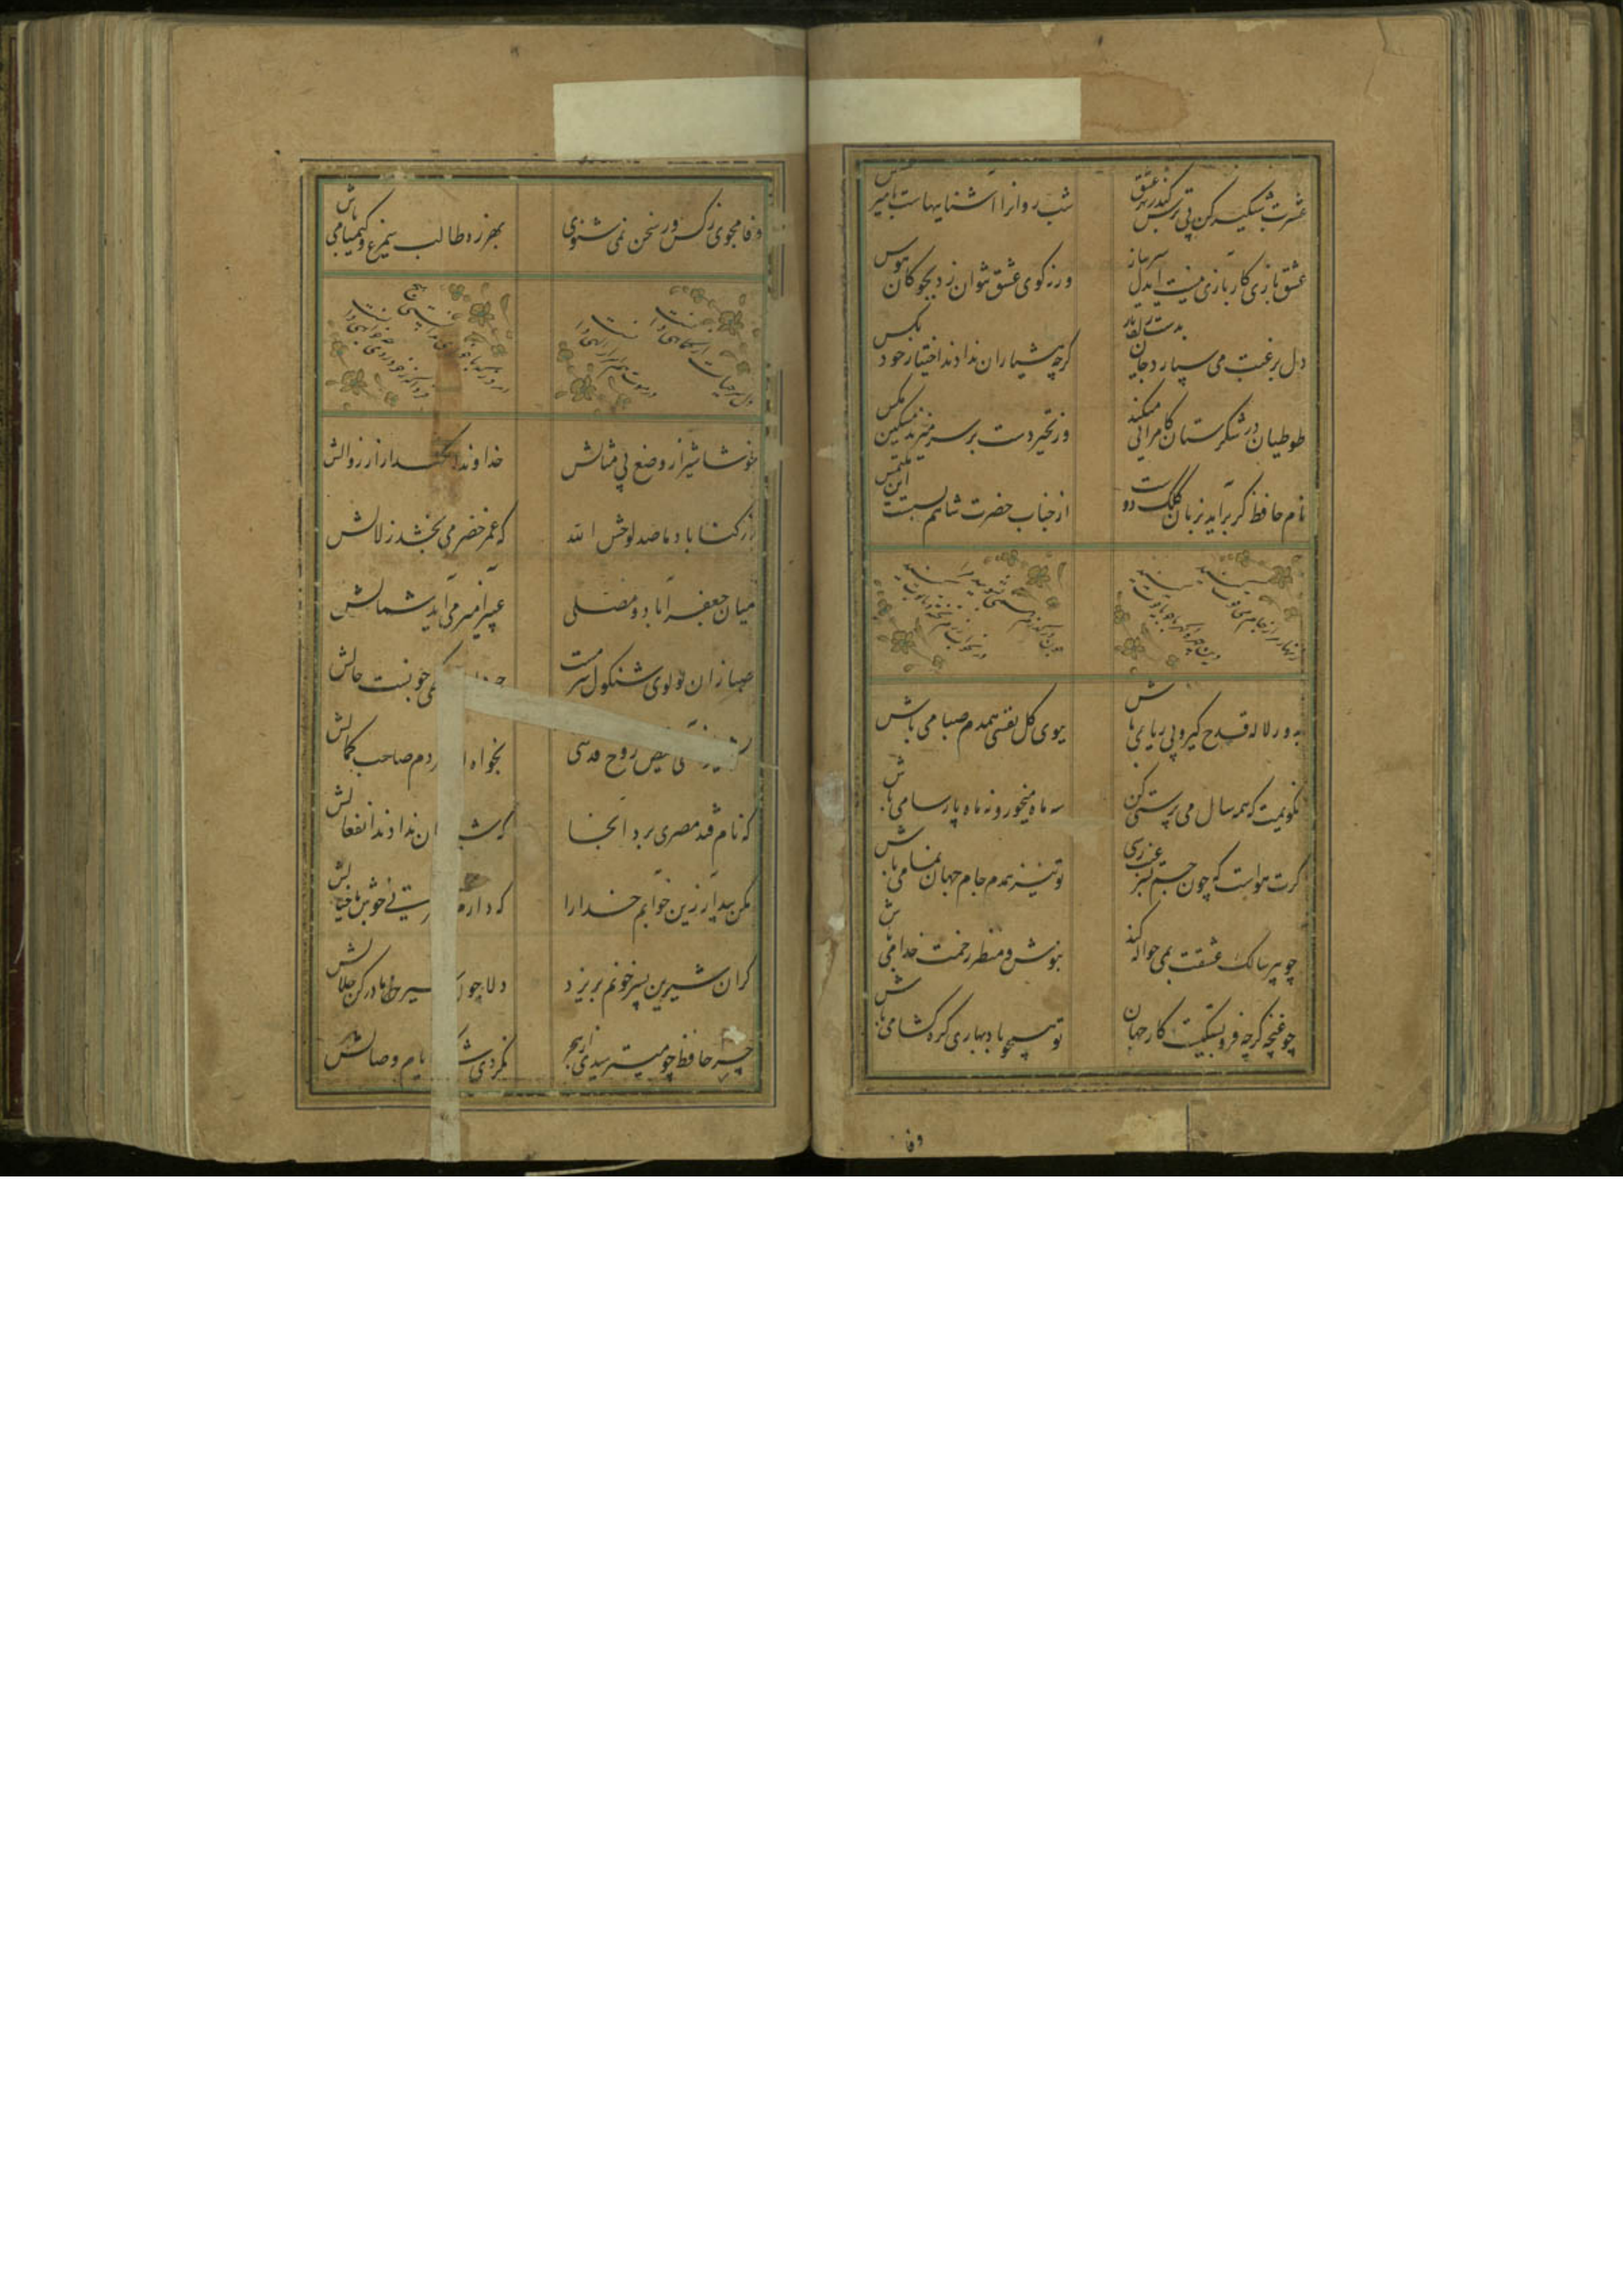 عشرت شبگیر کن بی ترس کندر شهر عشق
شب روانرا آشناییهاست با میر عسس
عشق بازی کار بازی نیست ایدل سر بباز
ورنه کوی عشق نتوان زد بچوکان هوس
دل برغبت می سپارد جان بدست یار
کرچه هشیاران ندادند اختیار خود بکس
طوطیان در شکرستان کامرانی میکنند
وز تحیر دست بر سر میزند مسکین مکس
نام حافظ کر برآید بر زبان کلک دوست
از جناب حضرت شاهم بسست این ملتمس
بدور لاله قدح کیر و بی ریا می باش
ببوی کل نفسی همدم صبا می باش
نکویمت که همه سال می پرستی کن
سه ماه میخور و نه ماه پارسا می باش
کرت هواست که چون جم بسر غیب رسی
تو نیز همدم جام جهان نما می باش
چو پیر سالک عشقت بمی حواله کند
بنوش و منتظر رحمت خدا می باش
چو غنچه کرچه فروبستکیست کار جهان
تو همچو باد بهاری کره کشا می باش
وفا
وفا مجوی ز کس ور سخن نمی شنوی
بهرزه طالب سیمرغ و کیمیا می باش
خوشا شیراز و وضع بی مثالش
خداوندا نکهدار از زوالش
ز رکناباد ما صد لوحش الله
که عمر خضر می بخشد زلالش
میان جعفرآباد و مصلی
عبیرآمیز می آید شمالش
صبا زان لولوی شنکول سرمست
خونست حالش
فیض روح قدسی
بخواه از مردم صاحب کمالش
که نام قند مصری برد آنجا
که ندادند انفعالش
مکن بیدار ازین خوابم خدارا
که دارم خوش با خیالش
کر آن شیرین پسر خونم بریزد
دلا چون شیر مادر کن حلالش
چرا حافظ چو میترسیدی از هجر
نکردی شکر ایام وصالش